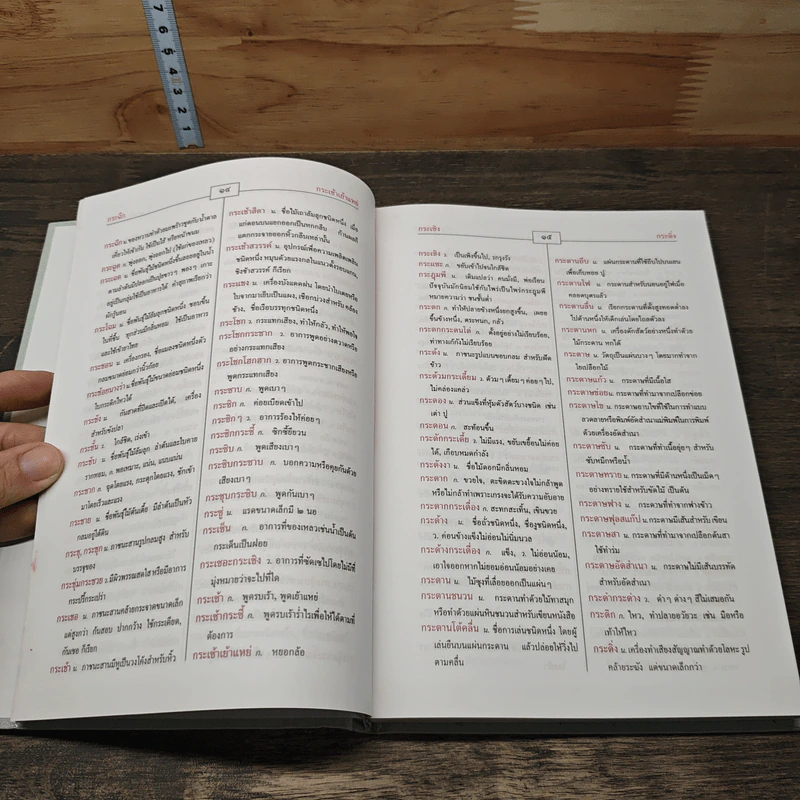 7 6 5 4 3 2 1
กระฉีก
๑๔
กระเช้าเย้าแหย่
กระฉีก น. ของหวานทำด้วยมะพร้าวขูดกับน้ำตาล
กระฉูด ก. พุ่งออก, พุ่งออกไป (ใช้แก่ของเหลว)
กระฉอน น. เครื่องกรอง, ชื่อแมลงชนิดหนึ่งตัว
กระชัง น. กันสาดที่ปิดและเปิดได้, เครื่อง
สำหรับขังปลา
กระชั้น ว. ใกล้ชิด, เร่งเข้า
กระชับ น. ชื่อพันธุ์ไม้ล้มลุก ลำต้นและใบคาย
กระชาก ก. ฉุดโดยแรง, กระตุกโดยแรง, ชักเข้า
มาโดยเร็วและแรง
กระชาย น. ชื่อพันธุ์ไม้ต้นเตี้ย มีลำต้นเป็นหัว
กลมอยู่ใต้ดิน
กระชุ, กระชุก น. ภาชนะสานรูปกลมสูง สำหรับ
บรรจุของ
กระชุ่มกระชวย ว. มีผิวพรรณสดใส หรือมีอาการ
กระปรี้กระเปร่า
กระเชอ น. ภาชนะสานคล้ายกระจาดขนาดเล็ก
แต่สูงกว่า ก้นสอบ ปากกว้าง ใช้กระเดียด,
กันเชอ ก็เรียก
กระเช้า น. ภาชนะสานมีหูเป็นวงโค้งสำหรับหิ้ว
กระเช้าสีดา น. ชื่อไม้เถาล้มลุกชนิดหนึ่ง เมื่อ
กระเช้าสวรรค์ น. อุปกรณ์เพื่อความเพลิดเพลิน
ชิงช้าสวรรค์ ก็เรียก
กระแชง น. เครื่องบังแดดฝน โดยนำใบเตยหรือ
ของ, ชื่อเรือบรรทุกชนิดหนึ่ง
กระโชก ว. กระแทกเสียง, ทำให้กลัว, ทำให้พอใจ
กระโชกกระชาก ว. อาการพูดอย่างตวาดหรือ
อย่างกระแทกเสียง
กระโชกโฮกฮาก ว. อาการพูดกระชากเสียงหรือ
พูดกระแทกเสียง
กระซาบ ก. พูดเบาๆ
กระซิก ก. ค่อยเบียดเข้าไป
กระซิกๆ ว. อาการร้องไห้ค่อยๆ
กระซิกกระซี้ ก. ซิกซี้ยียวน
กระซิบ ก. พูดเสียงเบาๆ
กระซิบกระซาบ ก. บอกความหรือคุยกันด้วย
เสียงเบาๆ
กระซุบกระซิบ ก. พูดกันเบาๆ
กระซู่ น. แรดขนาดเล็กมี ๒ นอ
กระเซ็น ก. อาการที่ของเหลวเช่นน้ำเป็นต้น
กระเด็นเป็นฝอย
กระเซอะกระเซิง ว. อาการที่ซัดเซไปโดยไม่มีที่
มุ่งหมายว่าจะไปที่ใด
กระเซ้า ก. พูดรบเร้า, พูดเย้าแหย่
กระเซ้ากระซี้ ก. พูดรบเร้าร่ำไรเพื่อให้ได้ตามที่
ต้องการ
กระเซ้าเย้าแหย่ ก. หยอกล้อ
กระเซิง
๑๕
กระดิ่ง
กระเซิง ว. เป็นเพิงขึ้นไป, รกรุงรัง
กระแซะ ก. ขยับเข้าไปจนใกล้ชิด
กระฎุมพี น. เดิมแปลว่า คนมั่งมี, พ่อเรือน
ปัจจุบันมักนิยมใช้กับไพร่เป็นไพร่กระฎุมพี
หมายความว่า ชนชั้นต่ำ
กระดก ก. ทำให้ปลายข้างหนึ่งยกสูงขึ้น, เผยอ
ขึ้นข้างหนึ่ง, ตระหนก, กลัว
กระดกกระดนโด่ ก. ตั้งอยู่อย่างไม่เรียบร้อย,
ท่าทางเก้กังไม่เรียบร้อย
กระด้ง น. ภาชนะรูปแบนขอบกลม สำหรับฝัด
ข้าว
กระด้วมกระเดี้ยม ว. ด้วมๆ เดี้ยมๆ ค่อยๆ ไป,
ไม่คล่องแคล่ว
กระดอง น. ส่วนแข็งที่หุ้มตัวสัตว์บางชนิด เช่น
เต่า ปู
กระดอน ก. สะท้อนขึ้น
กระดักกระเดี้ย ว. ไม่มีแรง, ขยับเขยื้อนไม่ค่อย
ได้, เกือบหมดกำลัง
กระดังงา น. ชื่อไม้ดอกมีกลิ่นหอม
กระดาก ก. ขวยใจ, ตะขิดตะขวงใจไม่กล้าพูด
หรือไม่กล้าทำเพราะเกรงจะได้รับความอับอาย
กระดากกระเดื่อง ก. สะทกสะเทิ้น, เขินขวย
กระด้าง น. ชื่อถั่วชนิดหนึ่ง, ชื่องูชนิดหนึ่ง,
ว. ค่อนข้างแข็งไม่อ่อนไม่นิ่มนวล
กระด้างกระเดื่อง ก. แข็ง, ว. ไม่อ่อนน้อม,
เอาใจออกหากไม่ยอมอ่อนน้อมอย่างเคย
กระดาน น. ไม้ซุงที่เลื่อยออกเป็นแผ่นๆ
กระดานชนวน น. กระดานทำด้วยไม้ทาสมุก
หรือทำด้วยแผ่นหินชนวนสำหรับเขียนหนังสือ
กระดานโต้คลื่น น. ชื่อการเล่นชนิดหนึ่ง โดยผู้
เล่นยืนบนแผ่นกระดาน แล้วปล่อยให้วิ่งไป
ตามคลื่น
กระดานถีบ น. แผ่นกระดานที่ใช้ถีบไปบนเลน
เพื่อเก็บหอย ปู
กระดานไฟ น. กระดานสำหรับนอนอยู่ไฟเมื่อ
คลอดบุตรแล้ว
กระดานลื่น น. เรียกกระดานที่ตั้งสูงทอดต่ำลง
ไปด้านหนึ่งให้เด็กเล่นโดยไถลตัวลง
กระดานหก น. เครื่องดักสัตว์อย่างหนึ่งทำด้วย
ไม้กระดาน หกได้
กระดาษ น. วัตถุเป็นแผ่นบางๆ โดยมากทำจาก
ใยเปลือกไม้
กระดาษแก้ว น. กระดาษที่มีเนื้อใส
กระดาษข่อย น. กระดาษที่ทำมาจากเปลือกข่อย
กระดาษไข น. กระดาษอาบไขที่ใช้ในการทำแบบ
ลวดลายหรือพิมพ์อัดสำเนาแล้วนำไปในการพิมพ์
ด้วยเครื่องอัดสำเนา
กระดาษซับ น. กระดาษที่ทำเนื้อยุ่ยๆ สำหรับ
ซับหมึกหรือน้ำ
กระดาษทราย น. กระดาษที่มีด้านหนึ่งเป็นเม็ดๆ
อย่างทรายใช้สำหรับขัดไม้ เป็นต้น
กระดาษฟาง น. กระดาษที่ทำจากฟางข้าว
กระดาษฟุลสแก๊ป น. กระดาษมีเส้นสำหรับเขียน
กระดาษสา น. กระดาษที่ทำมาจากเปลือกต้นสา
ใช้ทำร่ม
กระดาษอัดสำเนา น. กระดาษไม่มีเส้นบรรทัด
สำหรับอัดสำเนา
กระดำกระด่าง ว. ดำๆ ด่างๆ สีไม่เสมอกัน
กระดิก ก. ไหว, ทำปลายอวัยวะ เช่น มือหรือ
เท้าให้ไหว
กระดิ่ง น. เครื่องทำเสียงสัญญาณทำด้วยโลหะ รูป
คล้ายระฆัง แต่ขนาดเล็กกว่า